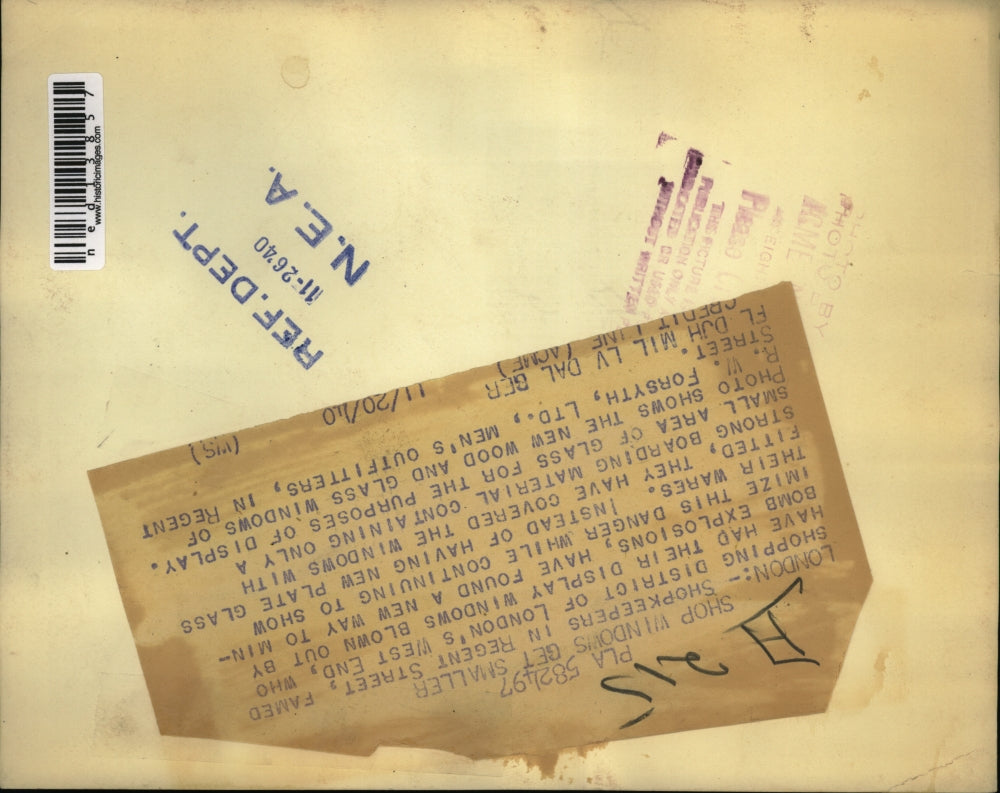 PLA 582497
SHOP WINDOWS GET SMALLER
LONDON:- SHOPKEEPERS IN REGENT STREET, FAMED
SHOPPING DISTRICT OF LONDON'S WEST END, WHO
HAVE HAD THEIR DISPLAY WINDOWS BLOWN OUT BY
BOMB EXPLOSIONS, HAVE FOUND A NEW WAY TO MIN-
IMIZE THIS DANGER, WHILE CONTINUING TO SHOW
THEIR WARES. INSTEAD OF HAVING NEW PLATE GLASS
FITTED, THEY HAVE COVERED THE WINDOWS WITH
STRONG BOARDING MATERIAL CONTAINING ONLY A
SMALL AREA OF GLASS FOR THE PURPOSES OF DISPLAY.
PHOTO SHOWS THE NEW WOOD AND GLASS WINDOWS OF
R. W. FORSYTH, LTD., MEN'S OUTFITTERS, IN REGENT
STREET.
FL DJH MIL LV DAL BER
CREDIT LINE (ACME) 11/20/40 (WS)
REF. DEPT.
11-26 40
N. E. A.
PHOTO BY
ACME
THIS PICTURE
PUBLICATION ONLY
OR USED
WITHOUT WRITTEN
ned13857
www.historicimages.com